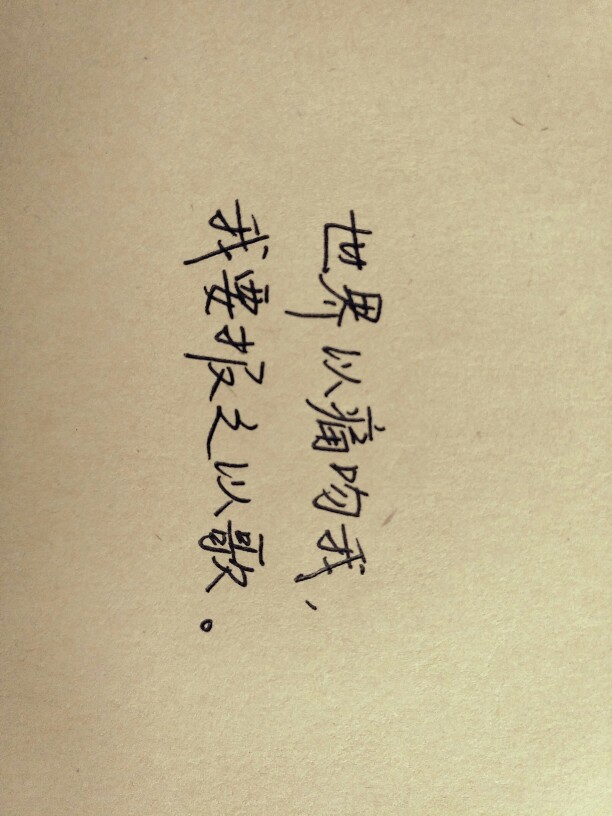 世界以痛吻我,
我要报之以歌。